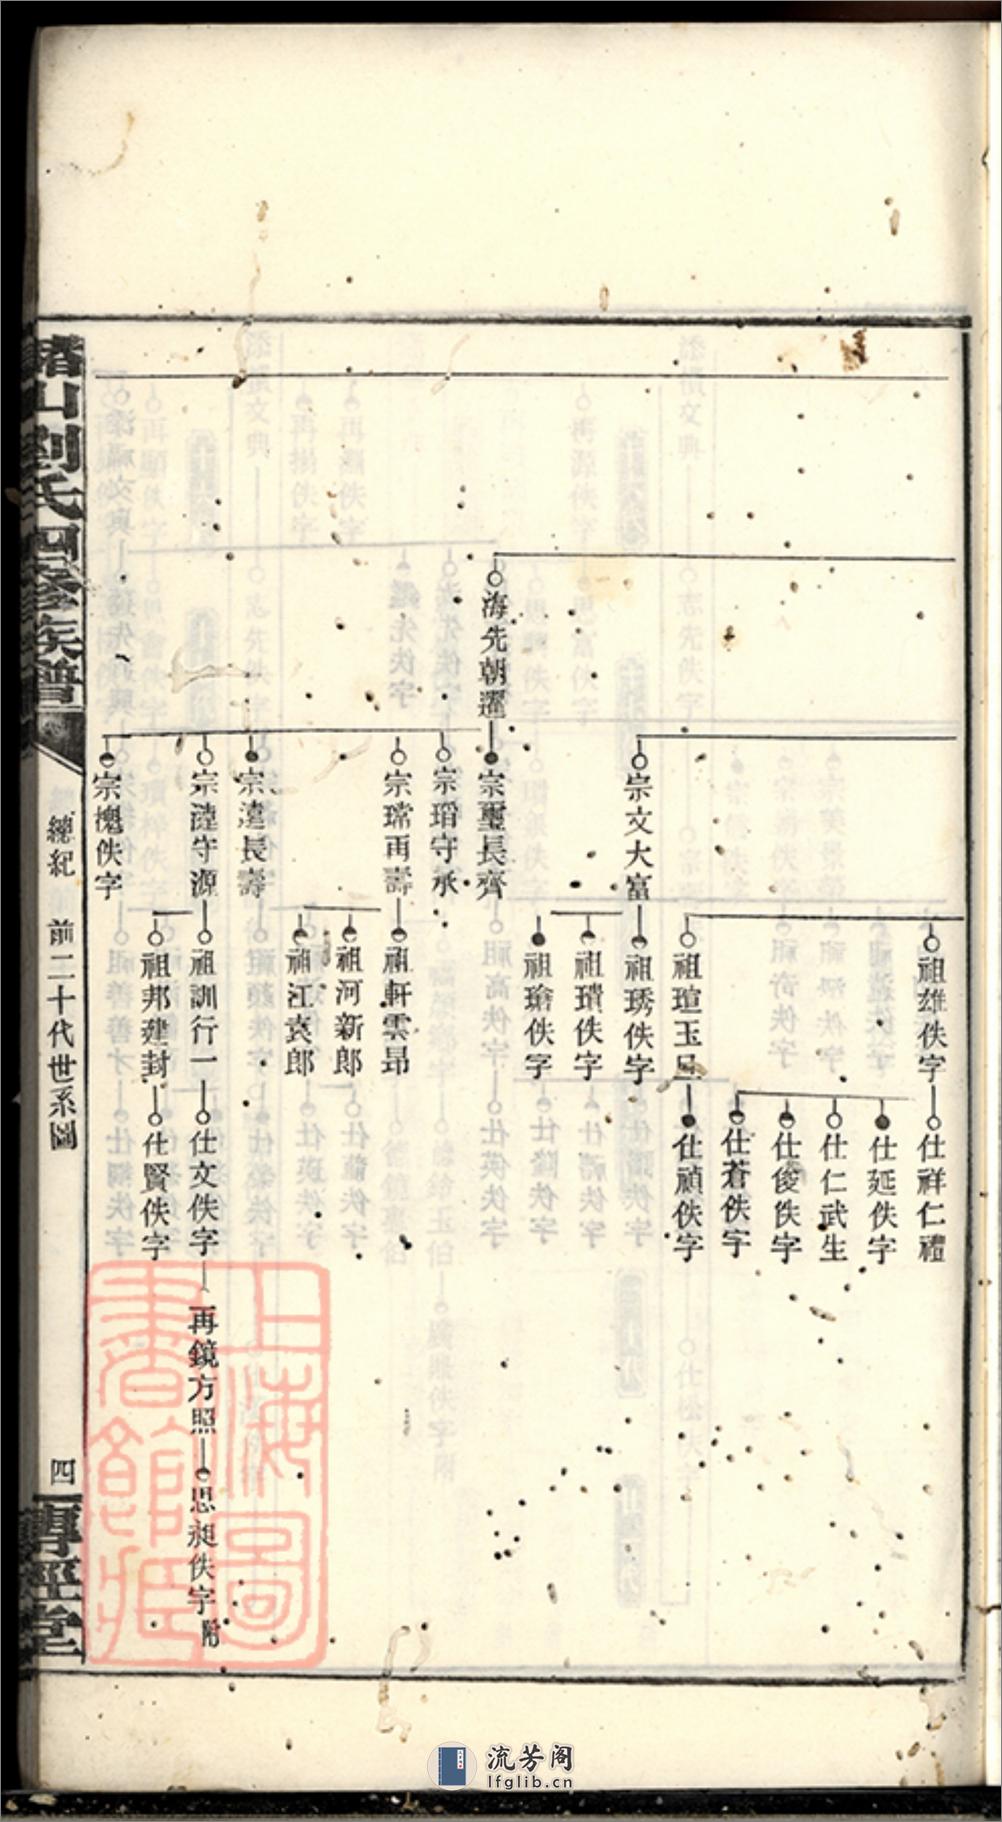 海先朝選
宗文大富
宗璽長齊
宗瑁守承
宗瑺再壽
宗達長壽
宗湟守源
宗槐佚字
祖雄佚字
祖瑄玉呈
祖琇佚字
祖璝佚字
祖瑲佚字
祖軒雲昂
祖河新郎
祖江袁郎
祖訓行一
祖邦建封
仕祥仁禮
仕延佚字
仕仁武生
仕俊佚字
仕蒼佚字
仕禎佚字
仕文佚字
仕賢佚字
再鏡方照
思昶佚字 附
山劉氏四修族譜
總紀 前二十代世系圖
四
上海圖書館藏
流芳阁
lfglib.cn